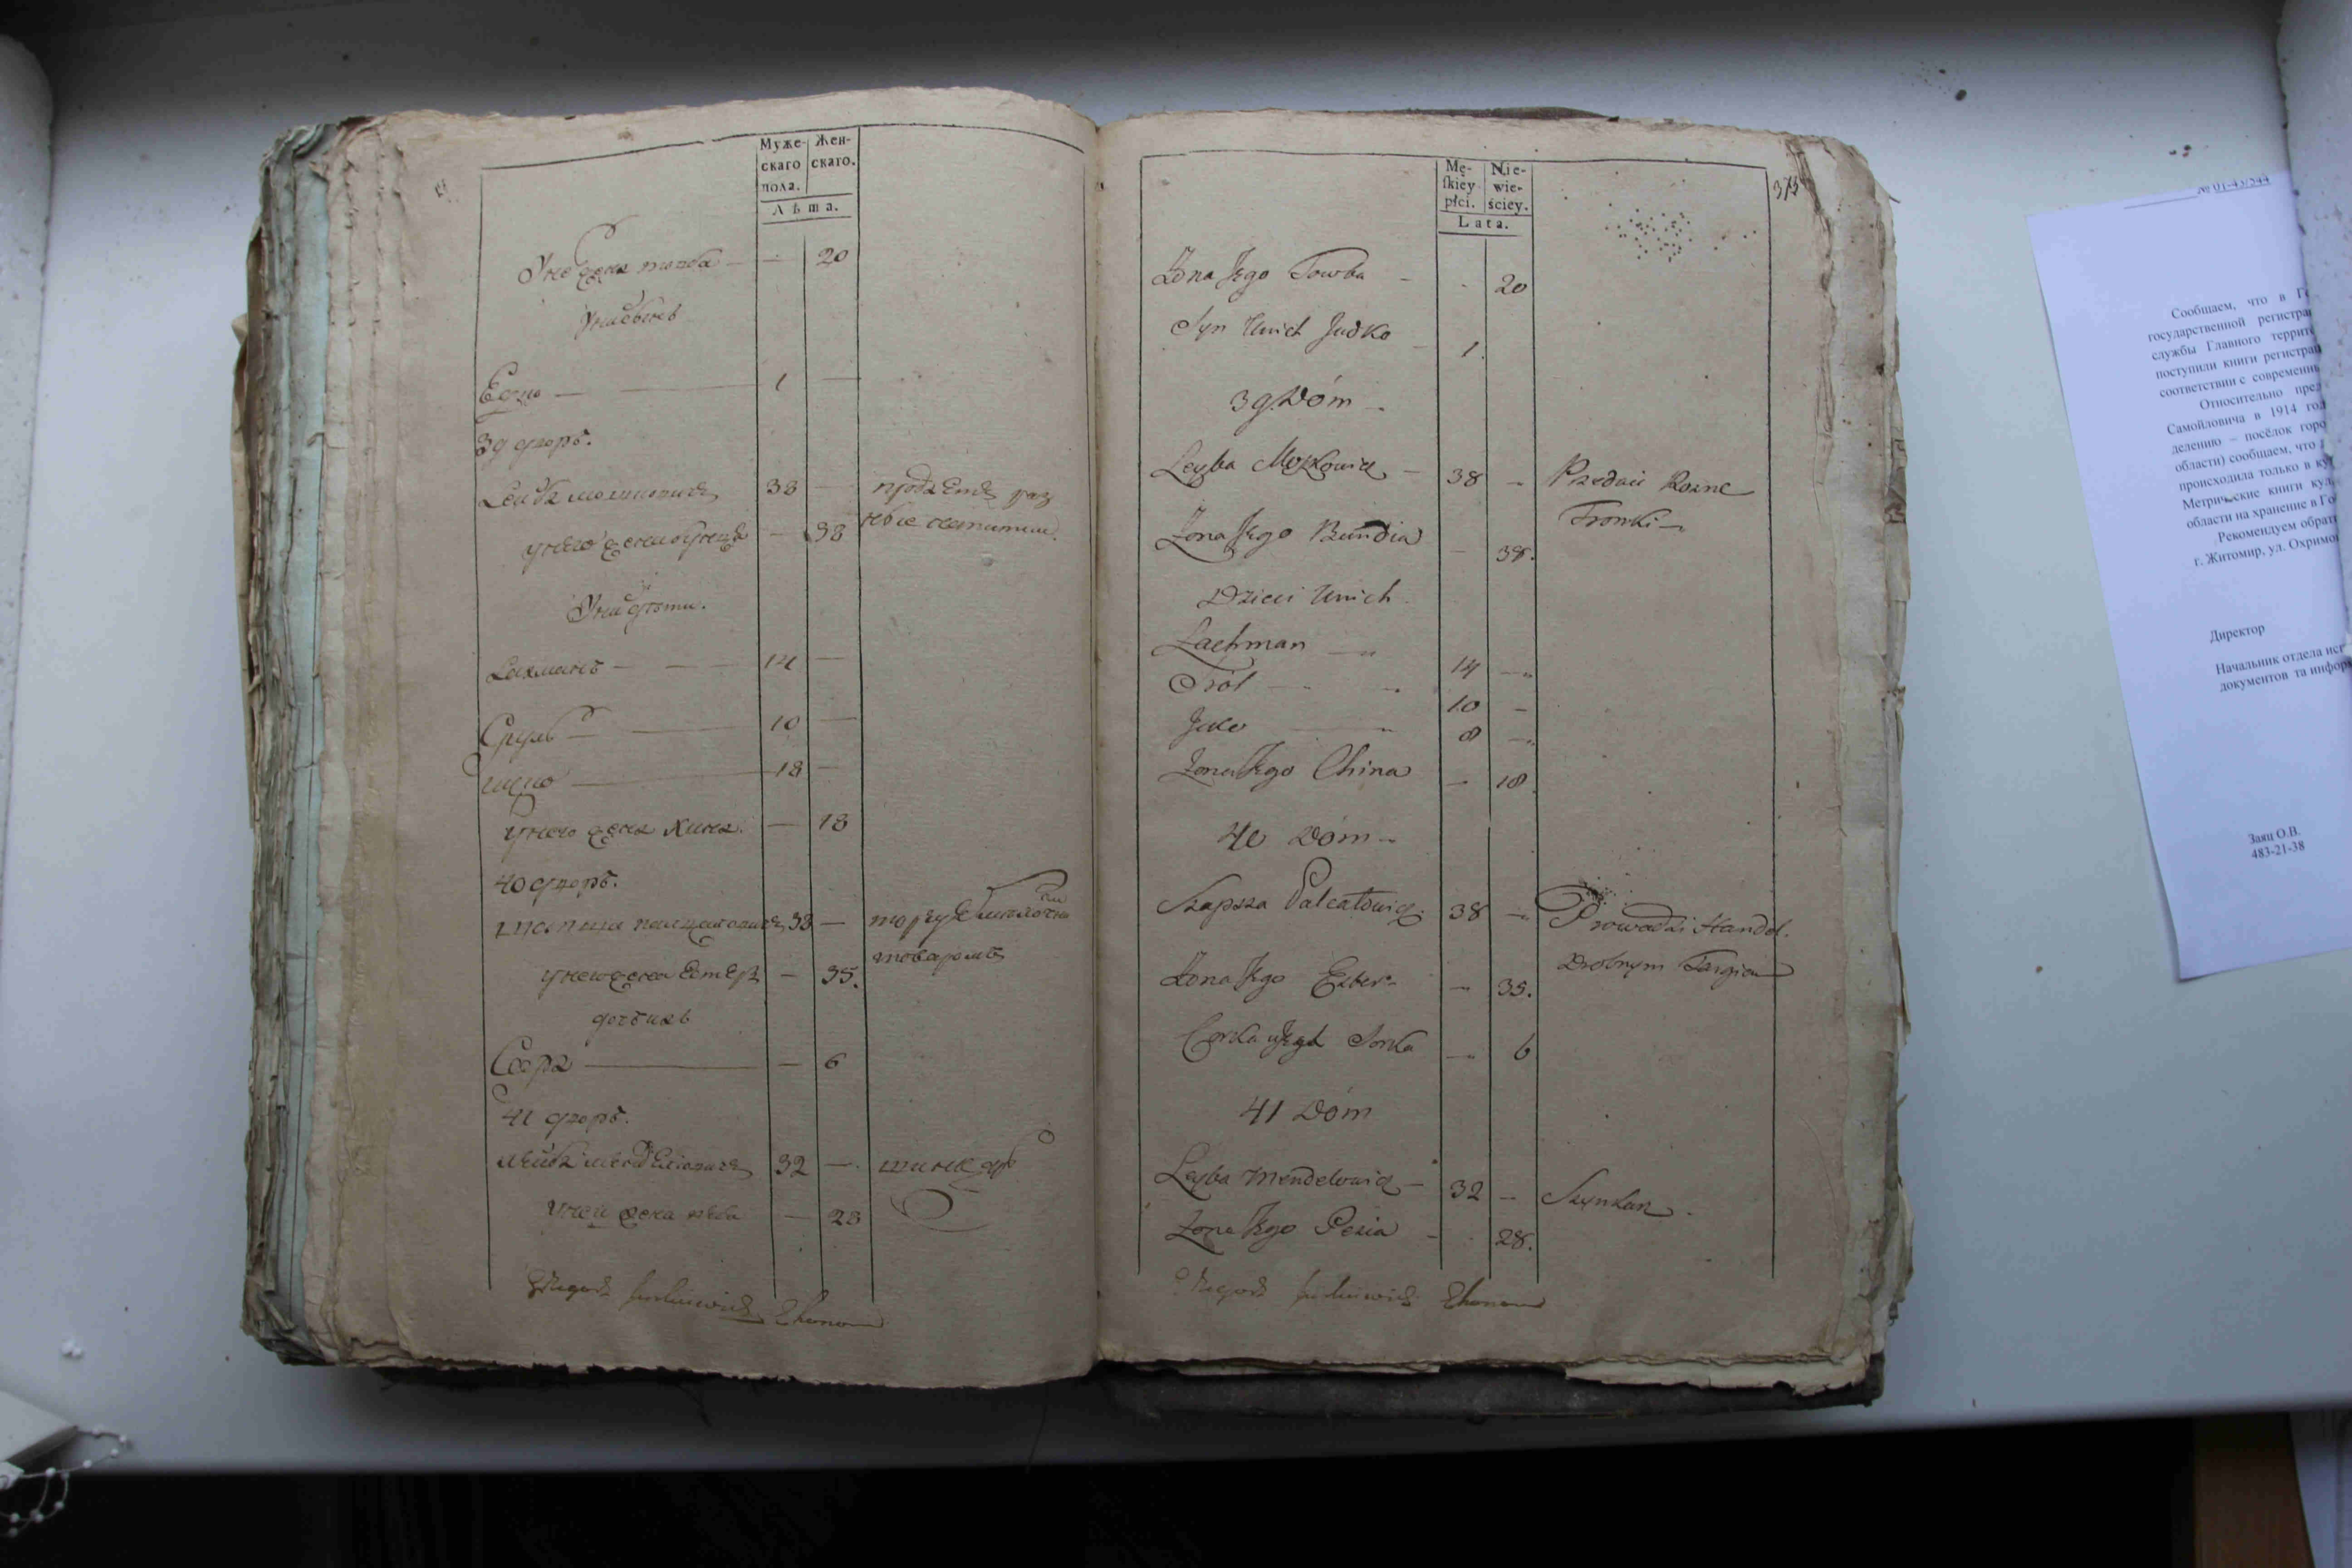 Муже- Жен-
скаго скаго.
пола.
Лѣта.
У него жена товба — — 20
У них сынъ
Едко — 1 —
39 дворъ.
Леиба мошковичъ 38 — продаетъ раз
ные напитки.
у него жена бунця — 38
У них дѣти.
Лахманъ — 14 —
Сруль — 10 —
ицко — 18 —
у него жена хина. — 18
40 дворъ.
38 — торгуетъ мѣлочны
ми
товаромъ
у него жена Естеръ — 35.
дочь ихъ
Сора — 6
41 дворъ.
Лейба менделіовичъ 32 — шинкарь
у ней жена — 28
Ekonom
Mę- Nie-
skiey wie-
płci. ściey.
Lata.
375
Żona Jego Towba — - 20
Syn Unich Judko — 1.
39. Dóm —
Leyba Moszkowicz — 38 — Przedaie Rozne
Tronki —
Żona Jego Bundia — 38.
Dzieci Unich
Lachman — 14 —
Sról — 10 —
Icko — 8 —
Żona Jego China — 18.
40 Dóm —
Szapsza Palcatowicz. 38 — Prowadzi Handel.
Drobnym Targiem
Żona Jego Ester — 35.
Corka Jego Sorka — 6
41 Dóm
Leyba Mendelowicz — 32 — Szynkarz.
Żona Jego Pesia — - 28.
Ekonom
№ 01-43/544
Сообщаем, что в Г
государственной регистра
службы Главного террит
поступили книги регистра
соответствии с современн
Относительно пред
Самойловича в 1914 год
делению – посёлок горо
области) сообщаем, что
происходила только в
Метрические книги кул
области на хранение в Го
Рекомендуем обрат
г. Житомир, ул. Охримо
Директор
Начальник отдела исп
документов та инфор
Заяц О.В.
483-21-38